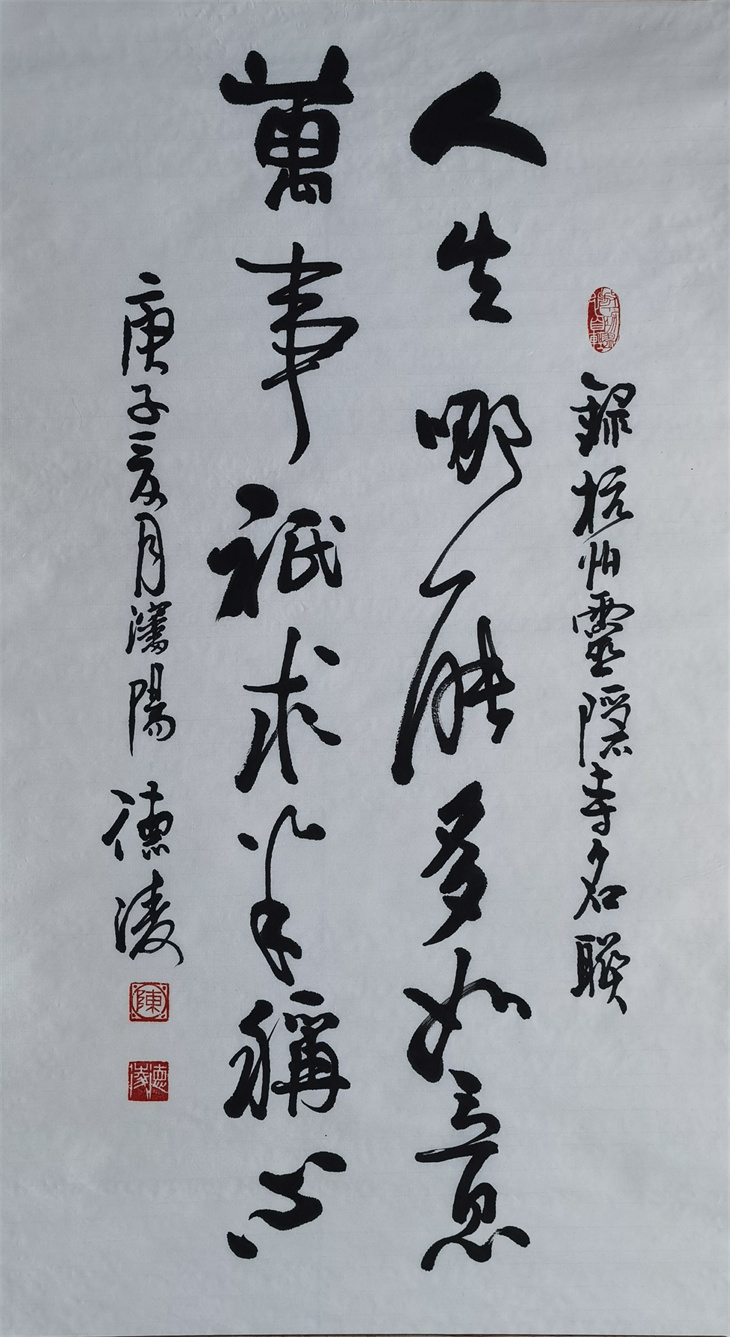 錄杭州靈隱寺名聯
人生哪能多如意
萬事祇求半稱心
庚子夏月瀋陽 德凌
陳
德凌